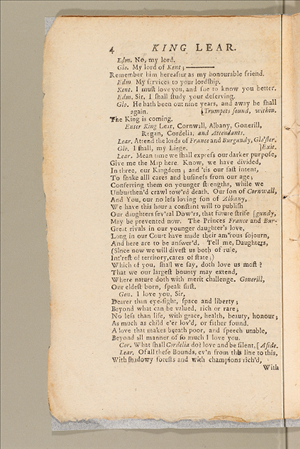 4 KING LEAR.
Edm. No, my lord,
Glo. My lord of Kent;
Remember him hereafter as my honourable friend.
Edm. My services to your lordship.
Kent. I must love you, and sue to know you better.
Edm. Sir, I shall study your deserving.
Glo. He hath been out nine years, and away he shall
again. [Trumpets sound, within.
The King is coming.
Enter King Lear, Cornwall, Albany, Gonerill,
Regan, Cordelia, and Attendants.
Lear. Attend the lords of France and Burgundy, Glo'ster.
Glo. I shall, my Liege. [Exit.
Lear. Mean time we shall express our darker purpose,
Give me the Map here. Know, we have divided,
In three, our Kingdom; and 'tis our fast intent,
To shake all cares and business from our age;
Conferring them on younger strengths, while we
Unburthen'd crawl tow'rd death. Our son of Cornwall,
And You, our no less loving son of Albany,
We have this hour a constant will to publish
Our daughters sev'ral Dow'rs, that future strife [gundy,
May be prevented now. The Princes France and Bur-
Great rivals in our younger daughter's love,
Long in our Court have made their am'rous sojourn,
And here are to be answer'd. Tell me, Daughters,
(Since now we will divest us both of rule,
Int'rest of territory, cares of state;)
Which of you, shall we say, doth love us most?
That we our largest bounty may extend,
Where nature doth with merit challenge. Gonerill,
Our eldest born, speak first.
Gon. I love you, Sir,
Dearer than eye-sight, space and liberty;
Beyond what can be valued, rich or rare;
No less than life, with grace, health, beauty, honour;
As much as child e'er lov'd, or father found.
A love that makes breath poor, and speech unable,
Beyond all manner of so much I love you.
Cor. What shall Cordelia do? love and be silent. [Aside.
Lear. Of all these Bounds, ev'n from this line to this,
With shadowy forests and with champions rich'd,
With